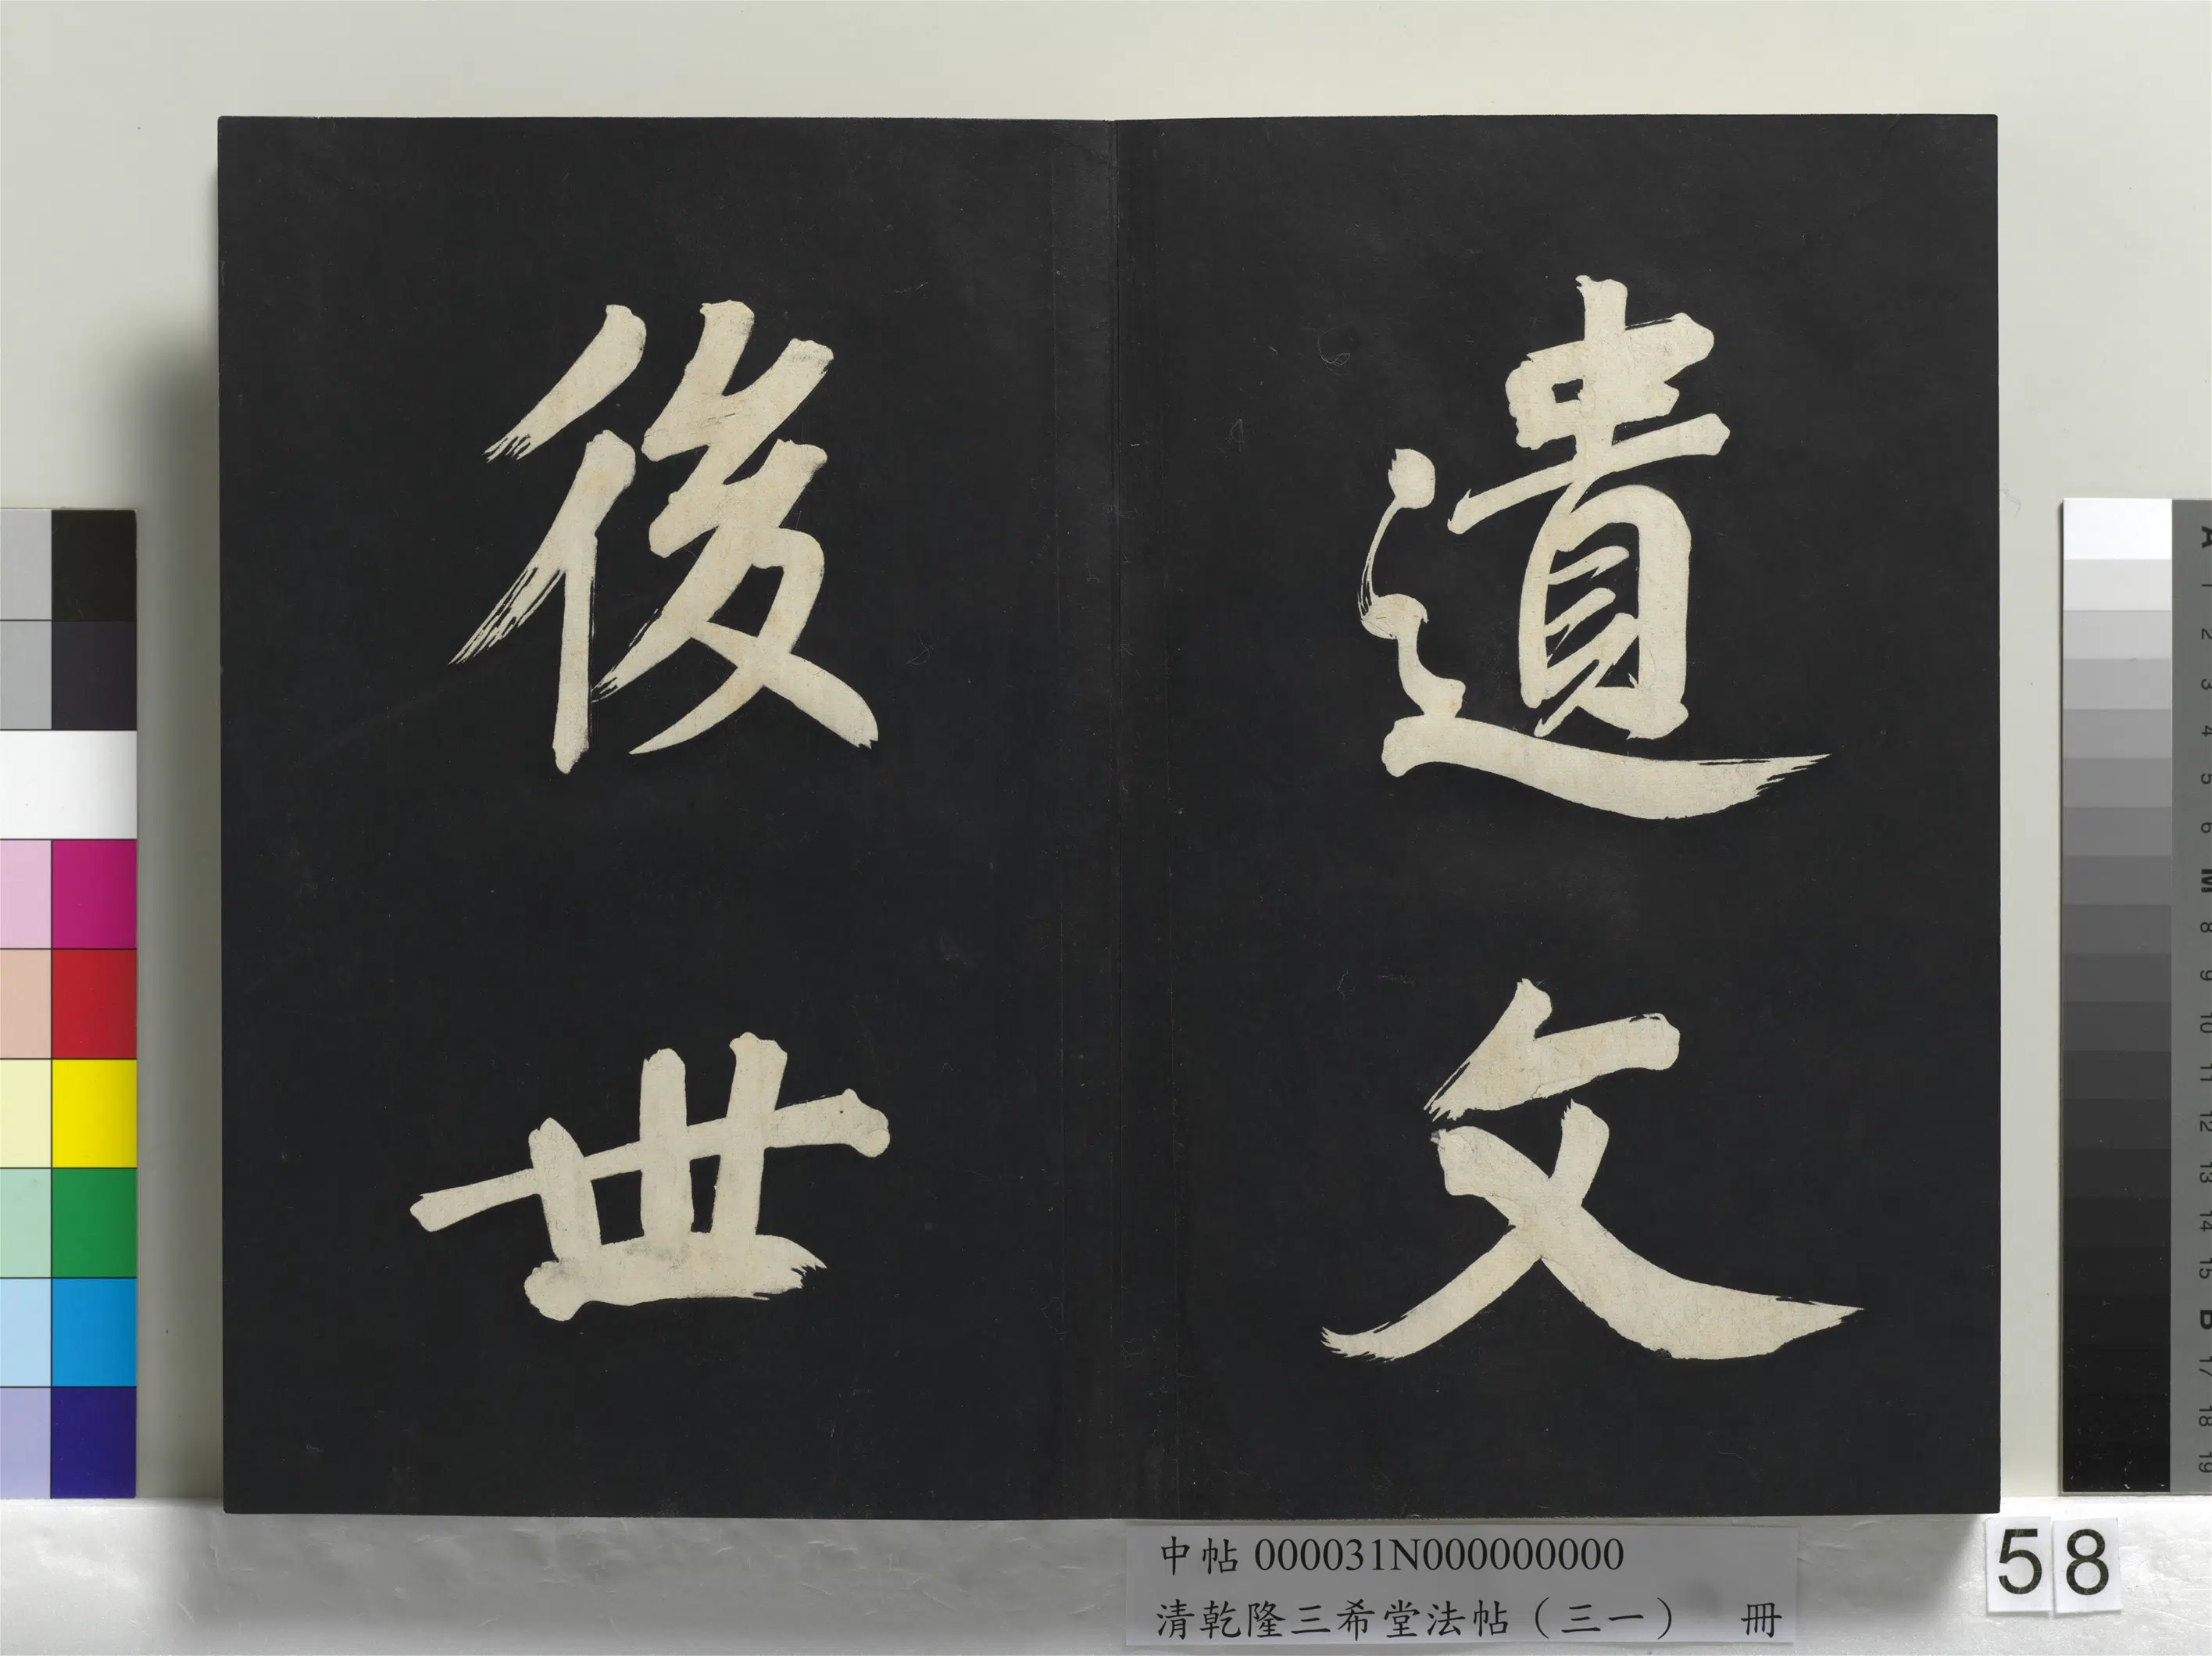 遺文
後世
中帖 000031N000000000
清乾隆三希堂法帖（三一） 冊
58
A
1
2
3
4
5
6
M
8
9
10
11
12
13
14
15
B
17
18
19